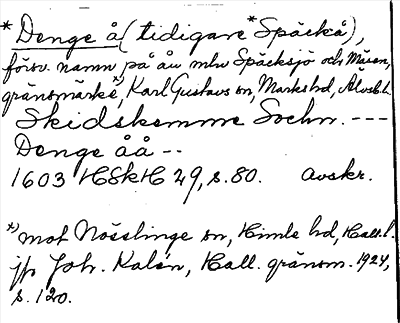 * Denge å (tidigare *Späckå),
försv. namn på ån mhv Späcksjö och Mäsen,
gränsmärke *), Karl Gustavs sn, Marks hd, Älvsb. l.
Skidskemme Sochn. ---
Denge åå --
1603 HSkH 29, s. 80. Avskr.
*) mot Nösslinge sn, Himle hd, Hall. l.
jfr Joh. Kalén, Hall. gränsm. 1924,
s. 120.